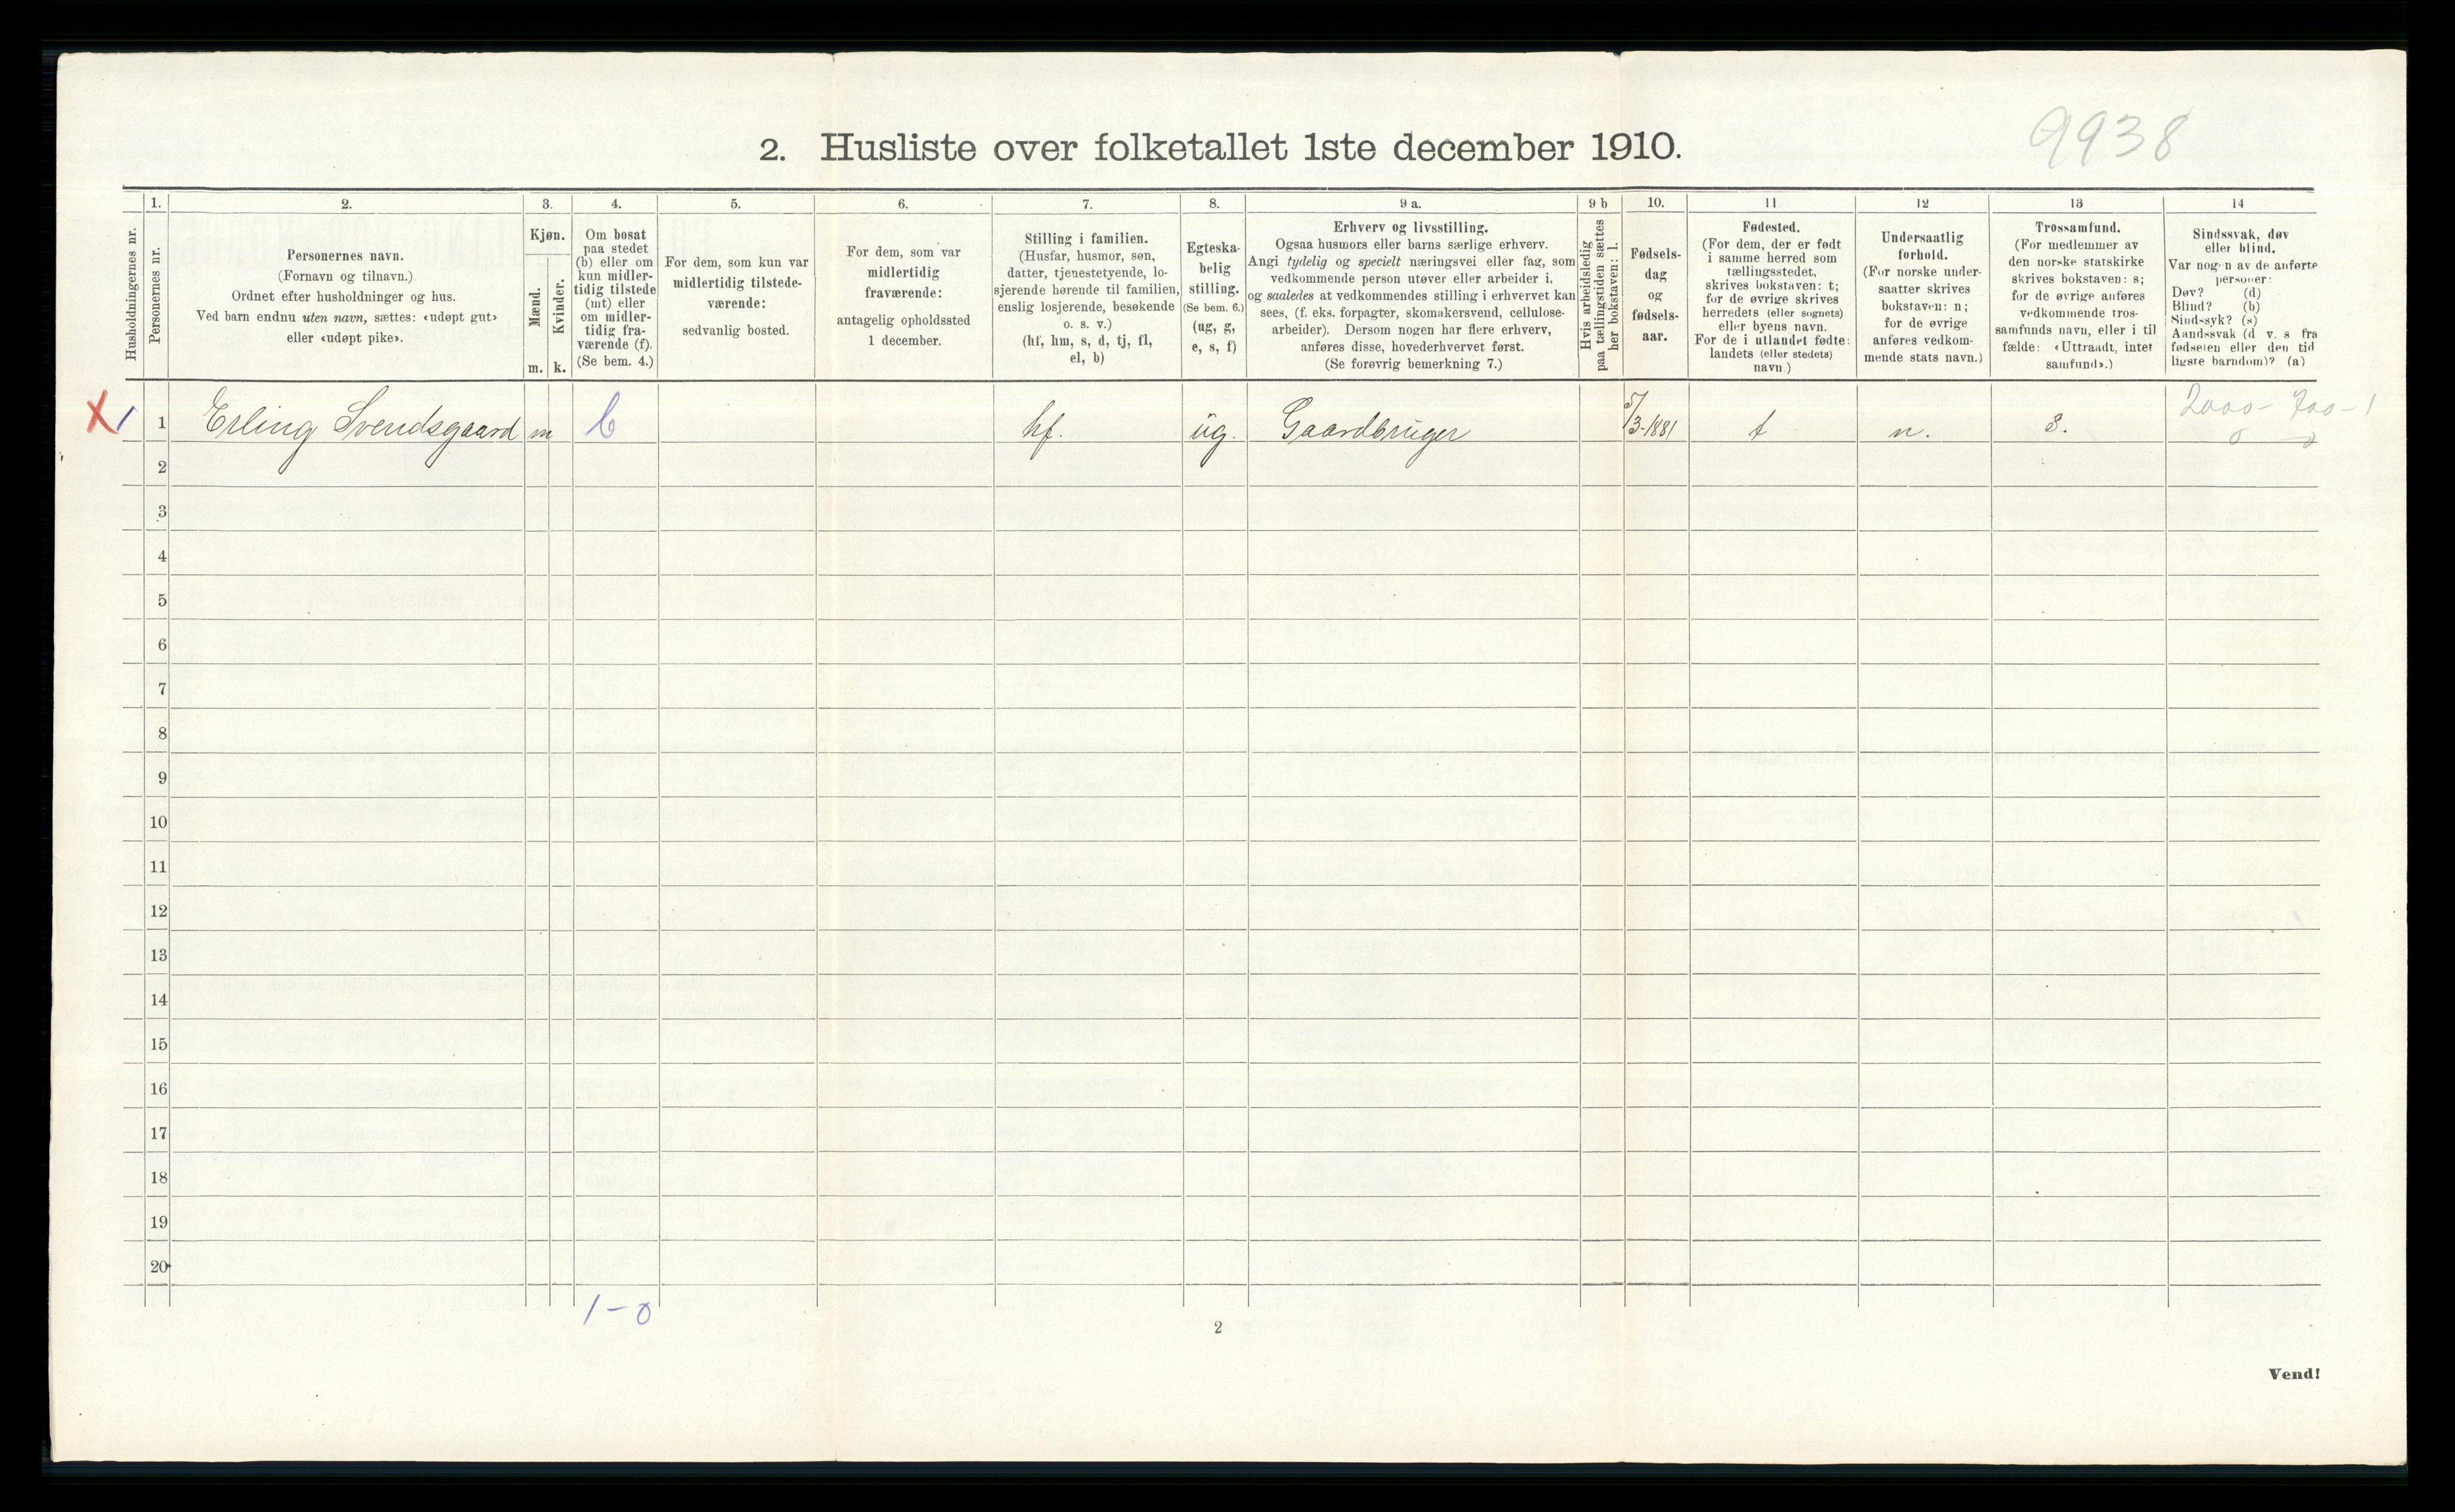 9938
2. Husliste over folketallet 1ste december 1910.
Husholdningernes nr.
1.
Personernes nr.
2.
Personernes navn.
(Fornavn og tilnavn.)
Ordnet efter husholdninger og hus.
Ved barn endnu uten navn, sættes: «udøpt gut»
eller «udøpt pike».
3.
Kjøn.
Mænd.
Kvinder.
m. k.
4.
Om bosat
paa stedet
(b) eller om
kun midler-
tidig tilstede
(mt) eller
om midler-
tidig fra-
værende (f).
(Se bem. 4.)
5.
For dem, som kun var
midlertidig tilstede-
værende:
sedvanlig bosted.
6.
For dem, som var
midlertidig
fraværende:
antagelig opholdssted
1 december.
7.
Stilling i familien.
(Husfar, husmor, søn,
datter, tjenestetyende, lo-
sjerende hørende til familien,
enslig losjerende, besøkende
o. s. v.)
(hf, hm, s, d, tj, fl,
el, b)
8.
Egteska-
belig
stilling.
(Se bem. 6.)
(ug, g,
e, s, f)
9 a.
Erhverv og livsstilling.
Ogsaa husmors eller barns særlige erhverv.
Angi tydelig og specielt næringsvei eller fag, som
vedkommende person utøver eller arbeider i,
og saaledes at vedkommendes stilling i erhvervet kan
sees, (f. eks. forpagter, skomakersvend, cellulose-
arbeider). Dersom nogen har flere erhverv,
anføres disse, hovederhvervet først.
(Se forøvrig bemerkning 7.)
9 b
Hvis arbeidsledig
paa tællingstiden sættes
her bokstaven: l.
10.
Fødsels-
dag
og
fødsels-
aar.
11
Fødested.
(For dem, der er født
i samme herred som
tællingsstedet,
skrives bokstaven: t;
for de øvrige skrives
herredets (eller sognets)
eller byens navn.
For de i utlandet fødte:
landets (eller stedets)
navn.)
12
Undersaatlig
forhold.
(For norske under-
saatter skrives
bokstaven: n;
for de øvrige
anføres vedkom-
mende stats navn.)
13
Trossamfund.
(For medlemmer av
den norske statskirke
skrives bokstaven: s;
for de øvrige anføres
vedkommende tros-
samfunds navn, eller i til
fælde: «Uttraadt, intet
samfund».)
14
Sindssvak, døv
eller blind.
Var nogen av de anførte
personer:
Døv? (d)
Blind? (b)
Sindssyk? (s)
Aandssvak (d v. s fra
fødselen eller den tid
ligste barndom)? (a)
X 1 1 Erling Svendsgaard m b hf. ug. Gaardbruger 5/3-1881 t n. s. 2000-700-1
0 0
2
3
4
5
6
7
8
9
10
11
12
13
14
15
16
17
18
19
20
1-0
2
Vend!